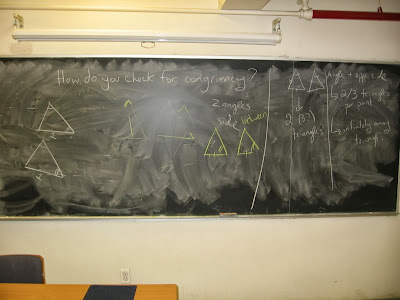 How do you check for congruency?
2 angles
side between
Angle + opp side
↳ 2/3 triangles
per point
2
triangles
↳ infinitely many
triangles